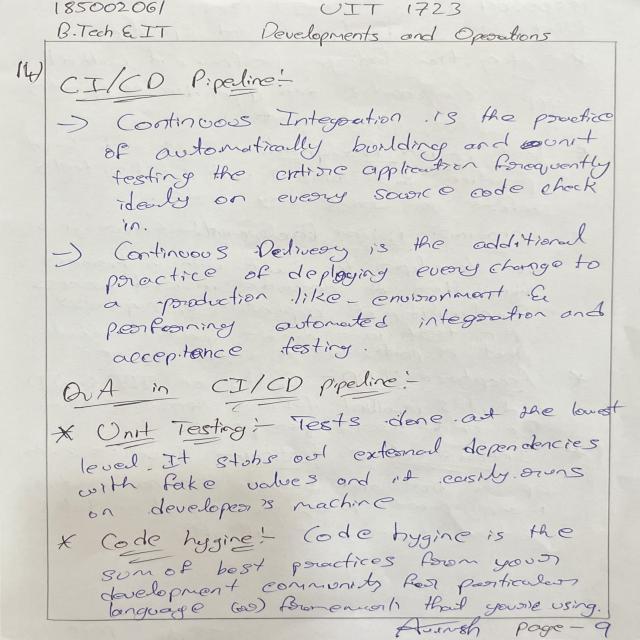 185002061 UIT 1723
B.Tech & IT Developments and Operations
14)
CI/CD Pipeline:-
-> Continuous Integration is the practice
of automatically building and unit
testing the entire application frequently
idealy on every source code check
in.
-> Continuous Delivery is the additional
practice of deploying every change to
a production like environment &
performing automated integration and
acceptance testing.
QA in CI/CD pipeline:-
* Unit Testing:- Tests done at the lowest
level. It stubs out external dependencies
with fake values and it easily runs
on developer's machine
* Code hygine:- Code hygine is the
sum of best practices from your
development community for particular
language (or) framework that you're using.
page - 9